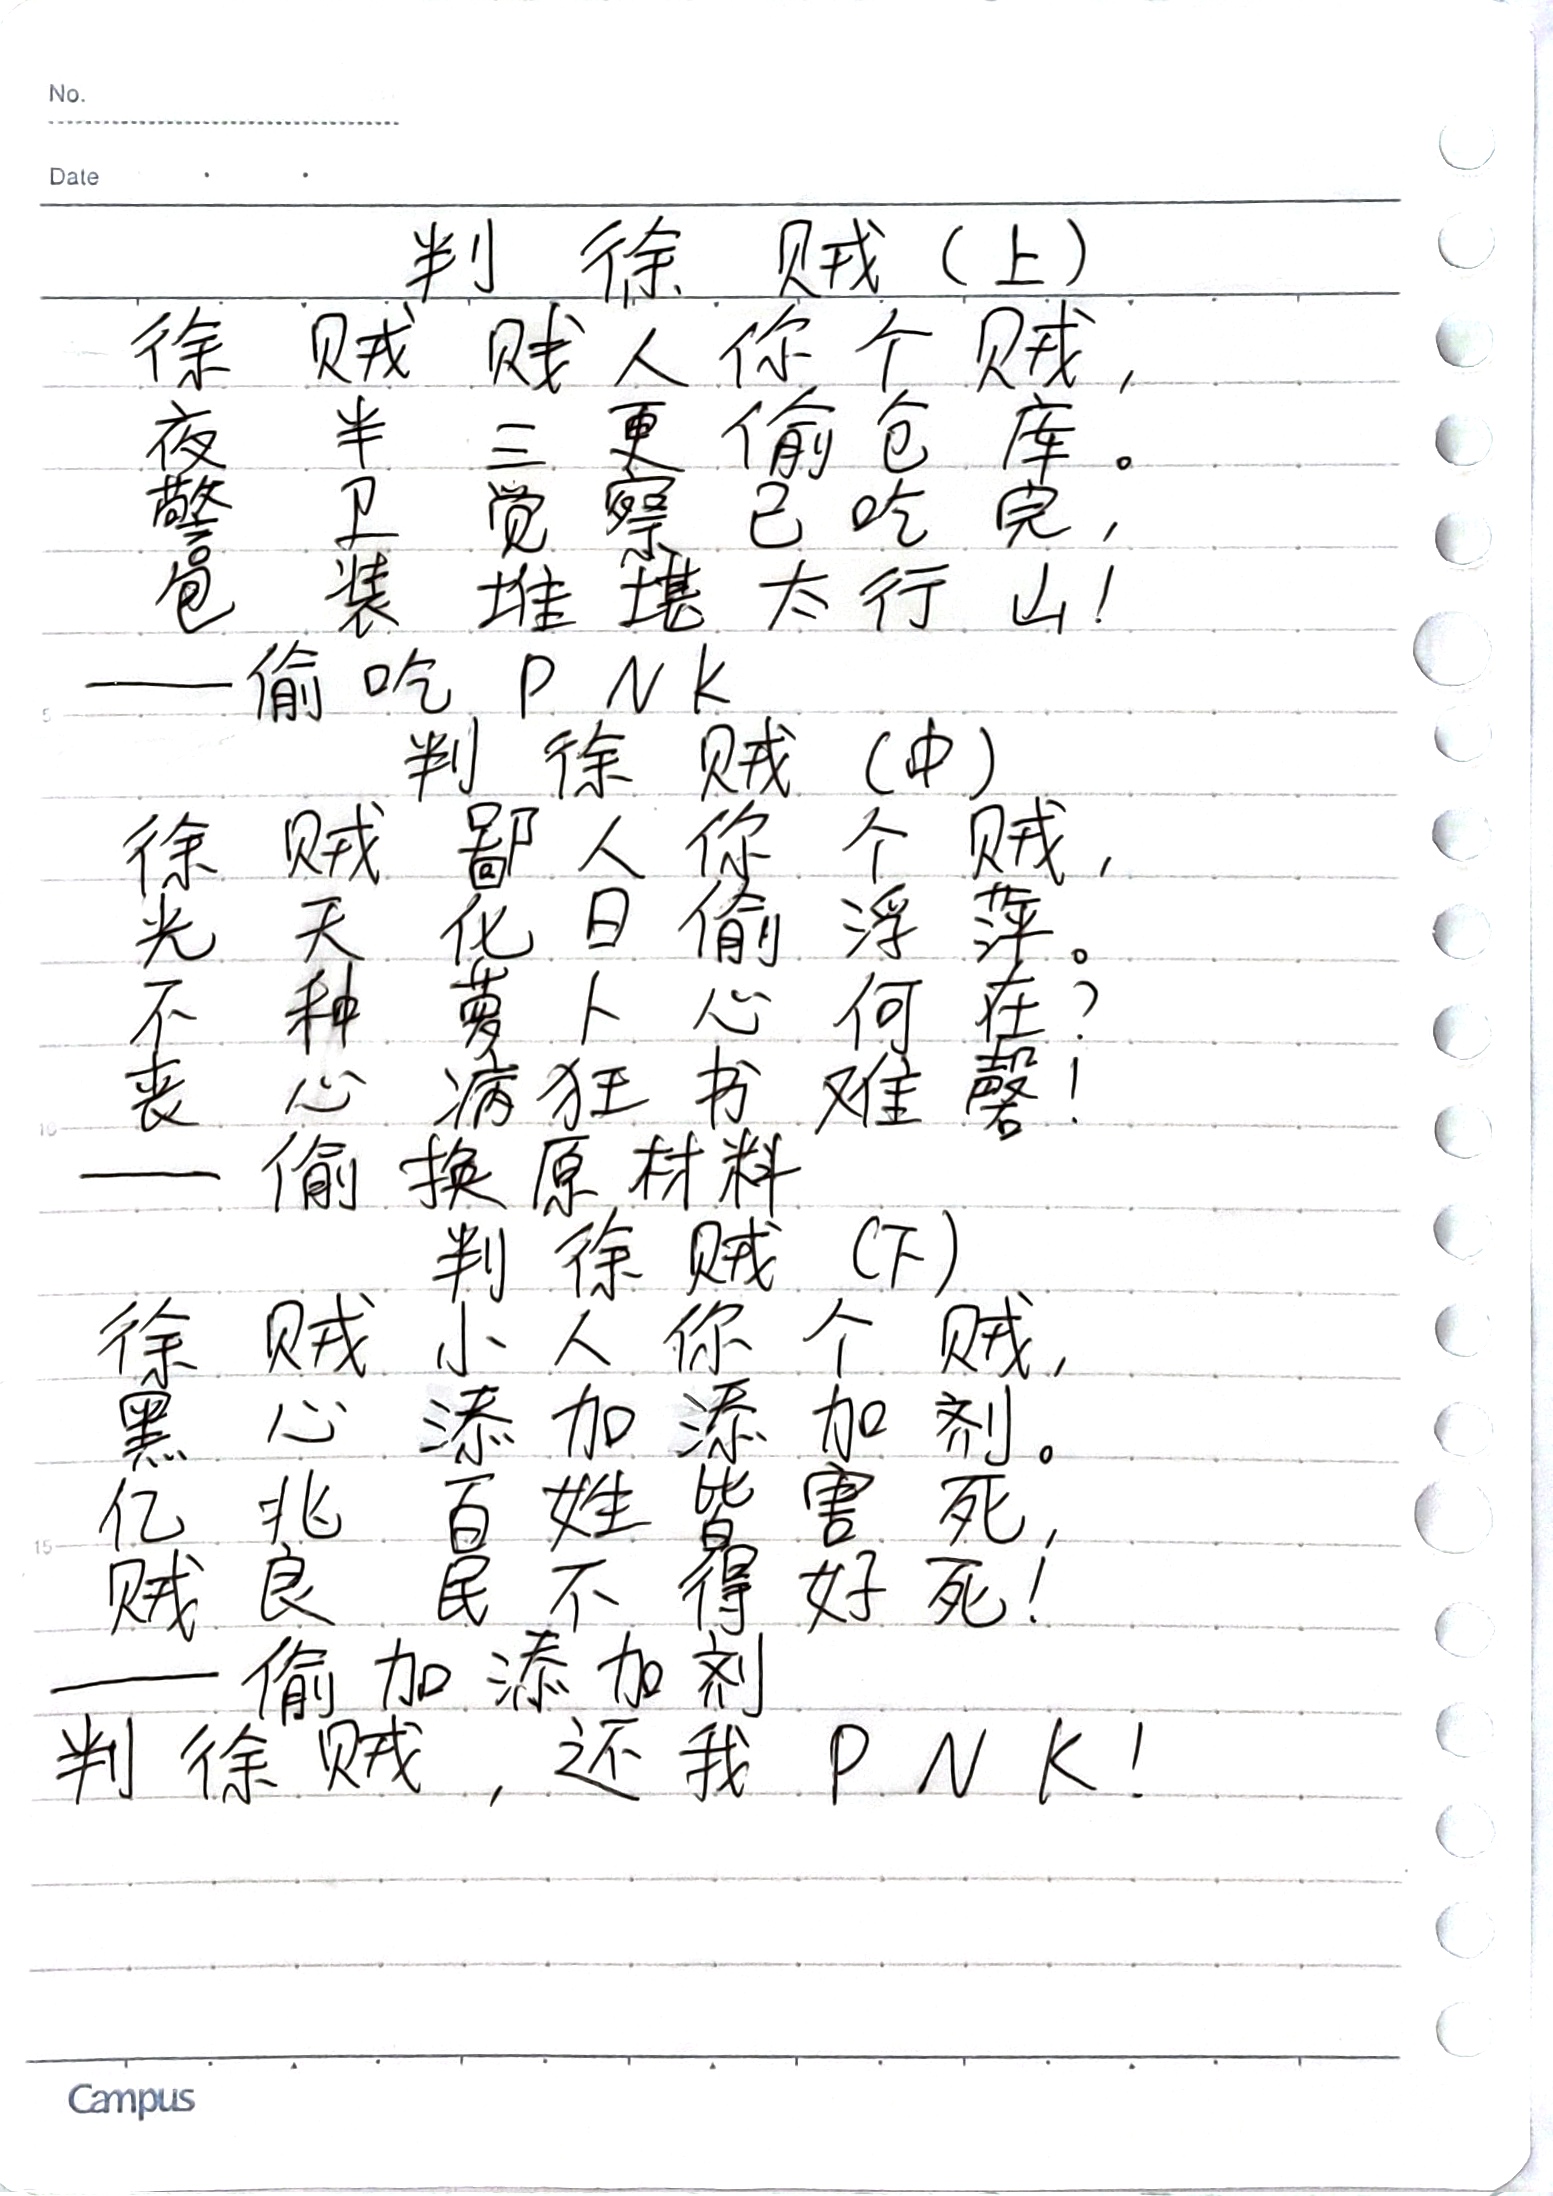 No.
Date
判徐贼(上)
徐贼贱人你个贼,
夜半三更偷仓库。
警卫觉察已吃完,
包装堆堪太行山!
——偷吃PNK
5
判徐贼(中)
徐贼鄙人你个贼,
光天化日偷浮萍。
不种萝卜心何在?
丧心病狂书难罄!
10
——偷换原材料
判徐贼(下)
徐贼小人你个贼,
黑心添加添加剂。
亿兆百姓皆害死,
15
贼良民不得好死!
——偷加添加剂
判徐贼,还我PNK!
Campus